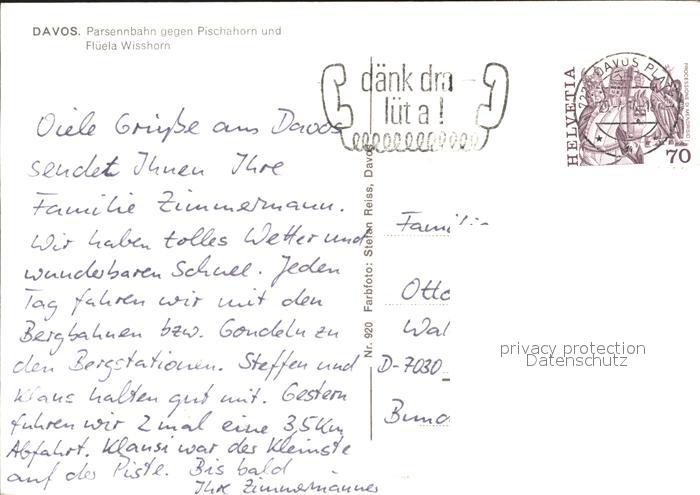 DAVOS. Parsennbahn gegen Pischahorn und
Flüela Wisshorn
dänk dra
lüt a!
HELVETIA
70
Viele Grüße aus Davos
sendet Ihnen Ihre
Familie Zimmermann.
Wir haben tolles Wetter und
wunderbaren Schnee. Jeden
Tag fahren wir mit den
Bergbahnen bzw. Gondeln zu
den Bergstationen. Steffen und
Klaus halten gut mit. Gestern
fuhren wir 2 mal eine 3,5 Km
Abfahrt. Klausi war der Kleinste
auf der Piste. Bis bald
Ihre Zimmermänner
Nr. 920 Farbfoto: Stefan Reiss, Davos
Famili
Otto
Wal
D-7030
Bund
privacy protection
Datenschutz